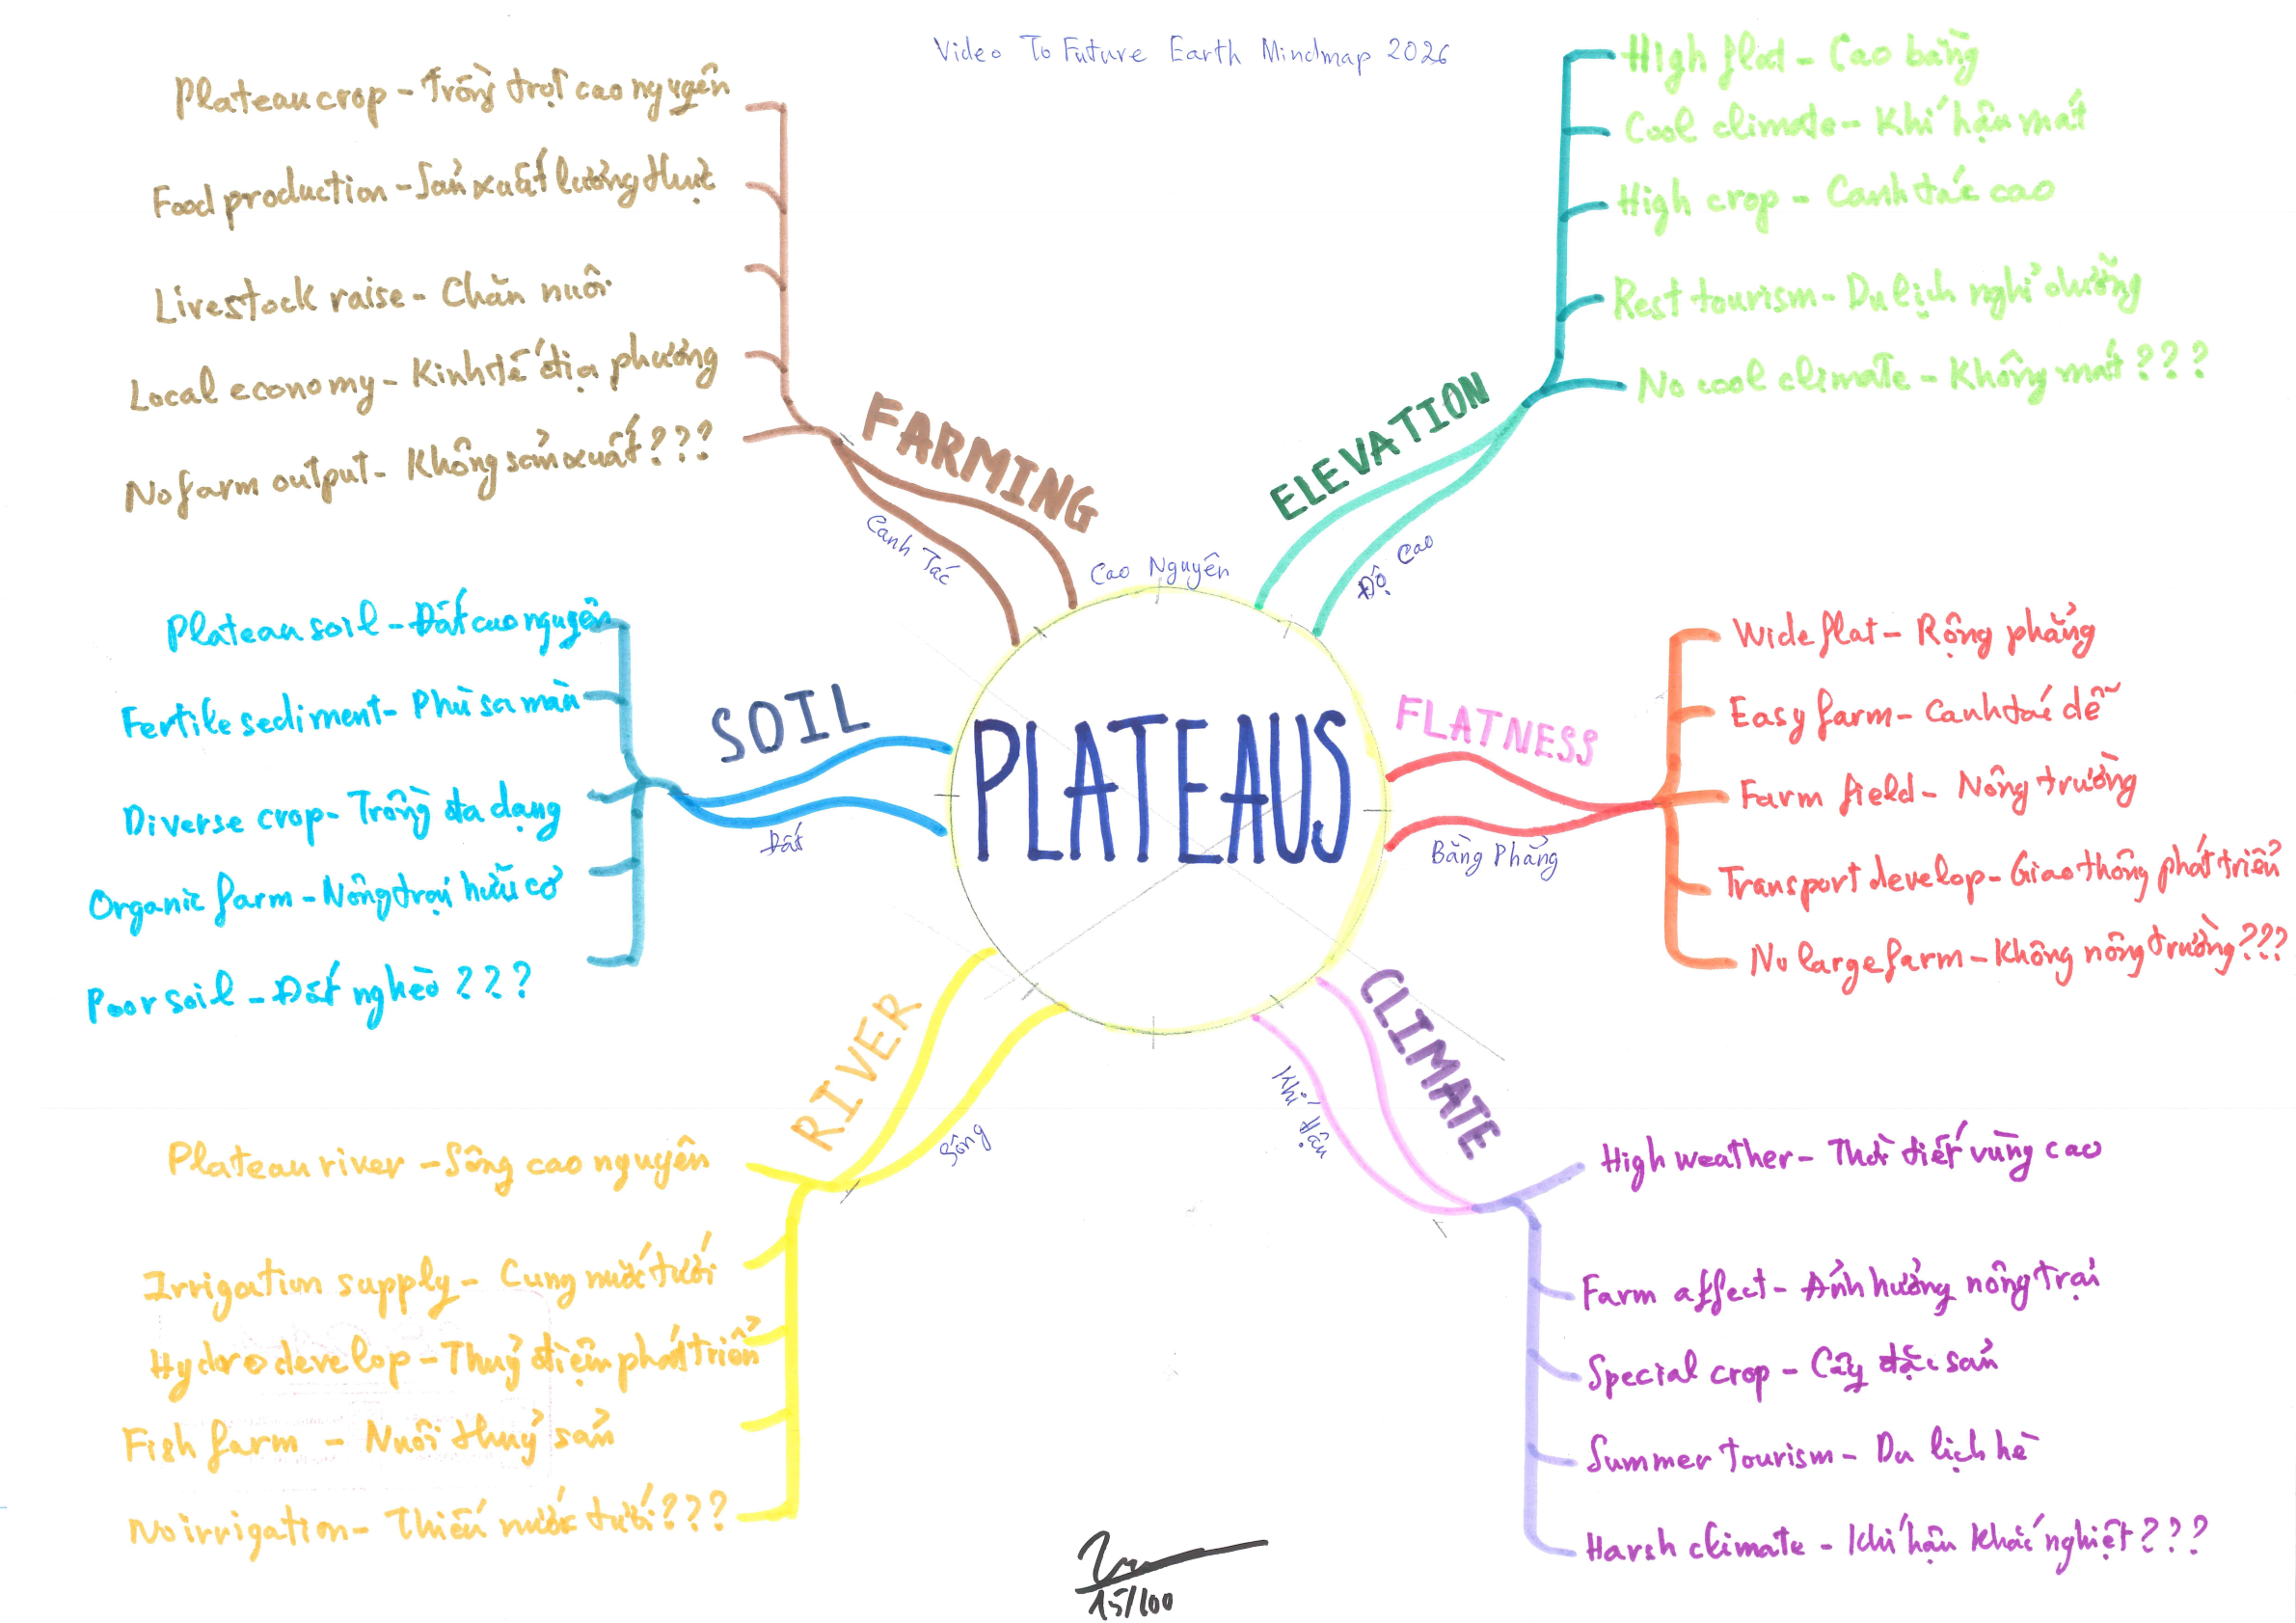 Video To Future Earth Mindmap 2026
PLATEAUS
Cao Nguyên
ELEVATION
Độ Cao
High flat - Cao bằng
Cool climate - Khí hậu mát
High crop - Canh tác cao
Rest tourism - Du lịch nghỉ dưỡng
No cool climate - Không mát ???
FLATNESS
Bằng Phẳng
Wide flat - Rộng phẳng
Easy farm - Canh tác dễ
Farm field - Nông trường
Transport develop - Giao thông phát triển
No large farm - Không nông trường???
CLIMATE
Khí Hậu
High weather - Thời tiết vùng cao
Farm affect - Ảnh hưởng nông trại
Special crop - Cây đặc sản
Summer tourism - Du lịch hè
Harsh climate - Khí hậu khắc nghiệt???
RIVER
Sông
Plateau river - Sông cao nguyên
Irrigation supply - Cung nước tưới
Hydro develop - Thuỷ điện phát triển
Fish farm - Nuôi thuỷ sản
No irrigation - Thiếu nước tưới???
SOIL
Đất
Plateau soil - Đất cao nguyên
Fertile sediment - Phù sa màu
Diverse crop - Trồng đa dạng
Organic farm - Nông trại hữu cơ
Poor soil - Đất nghèo ???
FARMING
Canh Tác
Plateau crop - Trồng trọt cao nguyên
Food production - Sản xuất lương thực
Livestock raise - Chăn nuôi
Local economy - Kinh tế địa phương
No farm output - Không sản xuất???
15/100